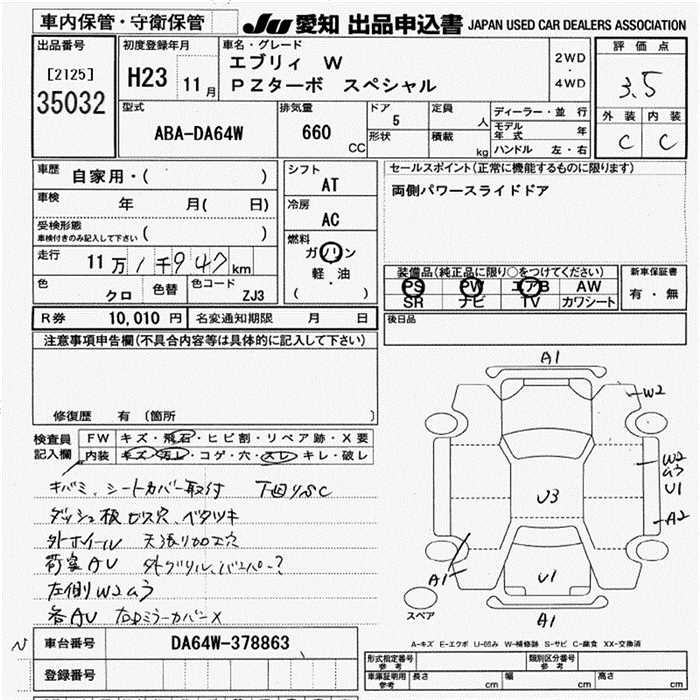 車内保管・守衛保管 JU 愛知 出品申込書 JAPAN USED CAR DEALERS ASSOCIATION
出品番号 [2125] 35032
初度登録年月 H23 11月
車名・グレード エブリィ W
PZターボ スペシャル
2WD・4WD
評価点 3.5
外装 内装
C C
型式 ABA-DA64W
排気量 660 CC
ドア 5 形状
定員 人
積載 kg
ディーラー・並行
モデル年式 年
ハンドル 左・右
車歴 自家用・( )
車検 年 月( 日)
受検形態 車検付きのみ記入して下さい ( )
走行 11万1千947km
色 クロ 色替 色コード ZJ3
シフト AT
冷房 AC
燃料 ガソリン
軽・油
( )
セールスポイント(正常に機能するものに限ります)
両側パワースライドドア
装備品(純正品に限り○をつけてください)
PS PW エアB AW
SR ナビ TV カワシート
新車保証書 有・無
R券 10,010円 名変通知期限 月 日
後日品
注意事項申告欄(不具合内容等は具体的に記入して下さい)
修復歴 有 〔箇所 〕
検査員記入欄
FW キズ・飛石・ヒビ割・リペア跡・X要
内装 キズ・汚レ・コゲ・穴・スレ・キレ・破レ
キバミ、シートカバー取付 下回りSC
ダッシュ板ビス穴、ベタツキ
外ホイールW 天張り加工穴
荷室AU 外グリル、バンパー?
左側W2ムラ
各AU 右Dミラーカバー×
A1
W2
W2
ムラ
U1
A2
U3
A1
U1
A1
スペア
A-キズ E-エクボ U-凹み W-補修跡 S-サビ C-腐食 XX-交換済
車台番号 DA64W-378863
登録番号
形式指定番号 参考 類別区分番号 参考
車庫証明用 参考 長さ cm 幅 cm 高さ cm